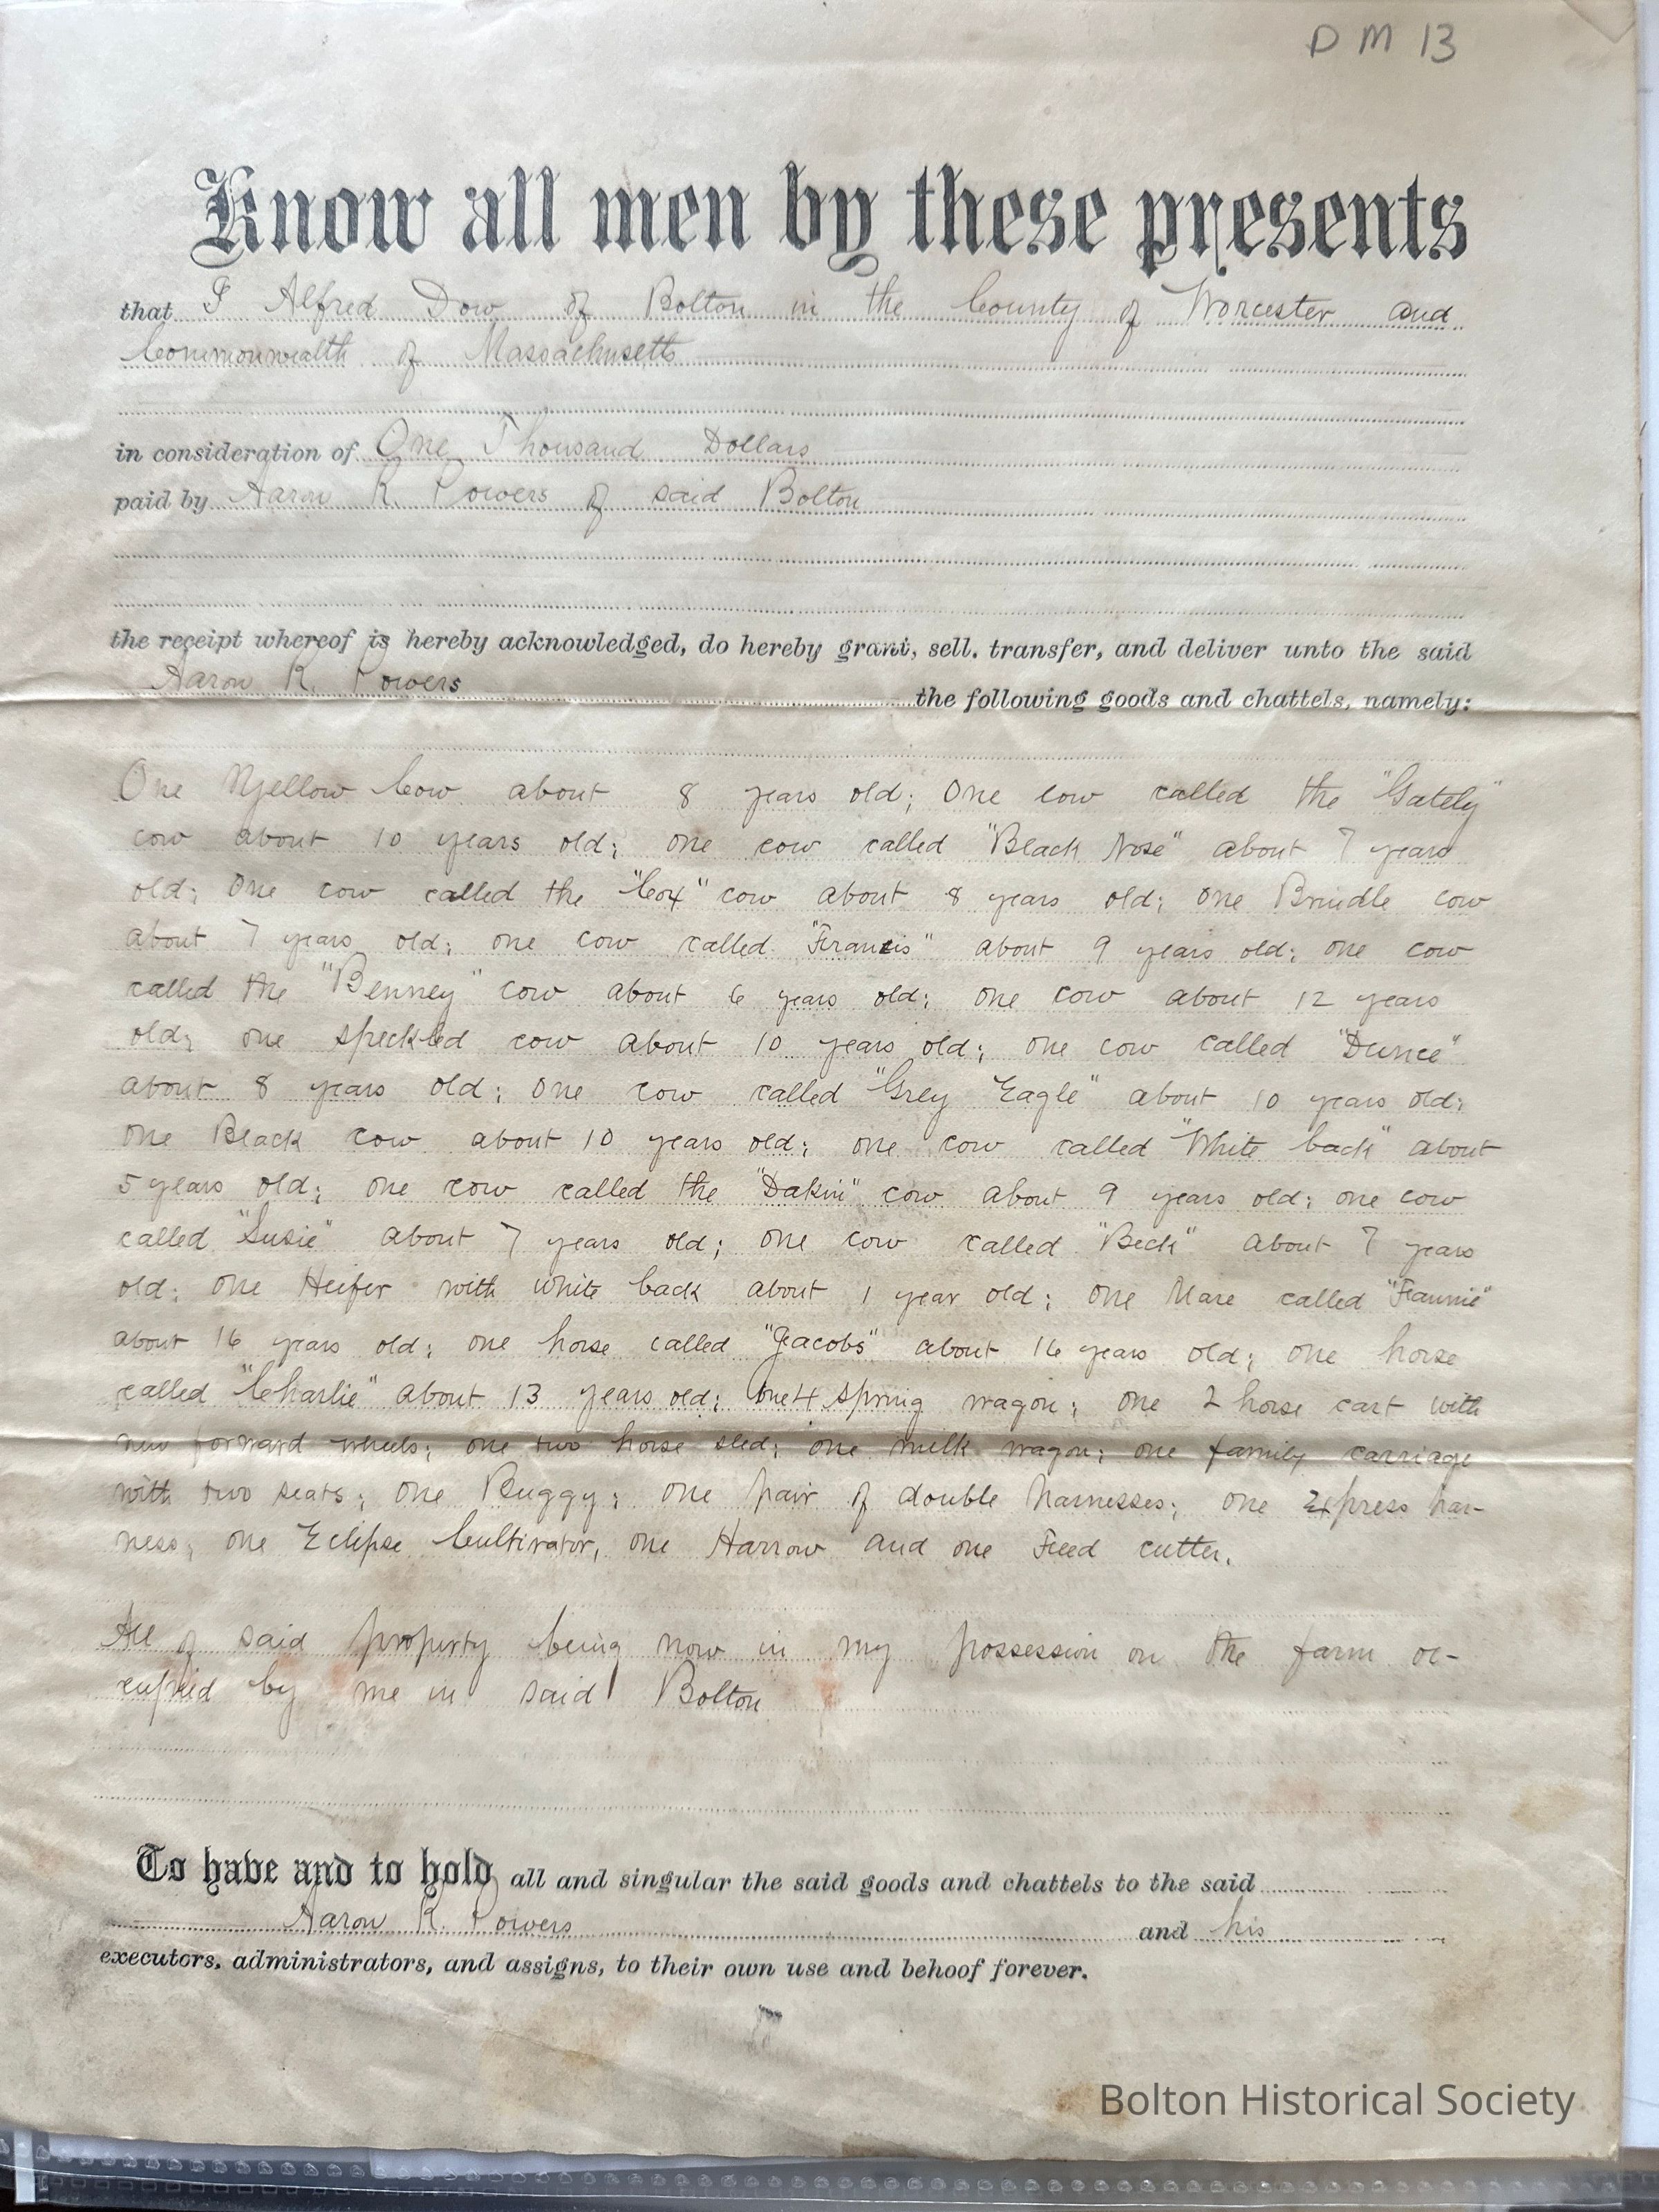 D M 13
Know all men by these presents
that I Alfred Dow of Bolton in the County of Worcester and
Commonwealth of Massachusetts
in consideration of One Thousand Dollars
paid by Aaron R. Powers of said Bolton
the receipt whereof is hereby acknowledged, do hereby grant, sell, transfer, and deliver unto the said
Aaron R. Powers the following goods and chattels, namely:
One Yellow Cow about 8 years old; One cow called the "Gately"
cow about 10 years old; one cow called "Black Nose" about 7 years
old; One cow called the "Cox" cow about 8 years old; one Brindle cow
about 7 years old; one cow called "Francis" about 9 years old; one cow
called the "Benney" cow about 6 years old; one cow about 12 years
old; one speckled cow about 10 years old; one cow called "Dunce"
about 8 years old; One cow called "Grey Eagle" about 10 years old;
one Black cow about 10 years old; one cow called "White back" about
5 years old; one cow called the "Dakin" cow about 9 years old; one cow
called "Susie" about 7 years old; one cow called "Beck" about 7 years
old; one Heifer with white back about 1 year old; one Mare called "Fannie"
about 16 years old; one horse called "Jacobs" about 16 years old; one horse
called "Charlie" about 13 years old; one 4 spring wagon; one 2 horse cart with
new forward wheels; one two horse sled; one milk wagon; one family carriage
with two seats; one Buggy; one pair of double harnesses; one Express har-
ness; one Eclipse Cultivator, one Harrow and one Feed cutter.
All of said property being now in my possession on the farm oc-
cupied by me in said Bolton
To have and to hold all and singular the said goods and chattels to the said
Aaron R. Powers and his
executors, administrators, and assigns, to their own use and behoof forever.
Bolton Historical Society